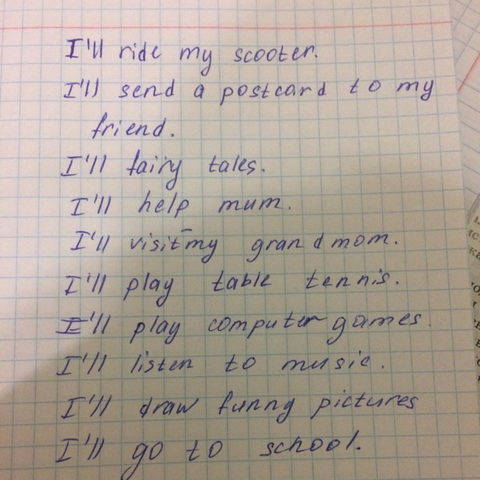 I'll ride my scooter.
I'll send a postcard to my
friend.
I'll fairy tales.
I'll help mum.
I'll visit my grandmom.
I'll play table tennis.
I'll play computer games.
I'll listen to music.
I'll draw funny pictures
I'll go to school.